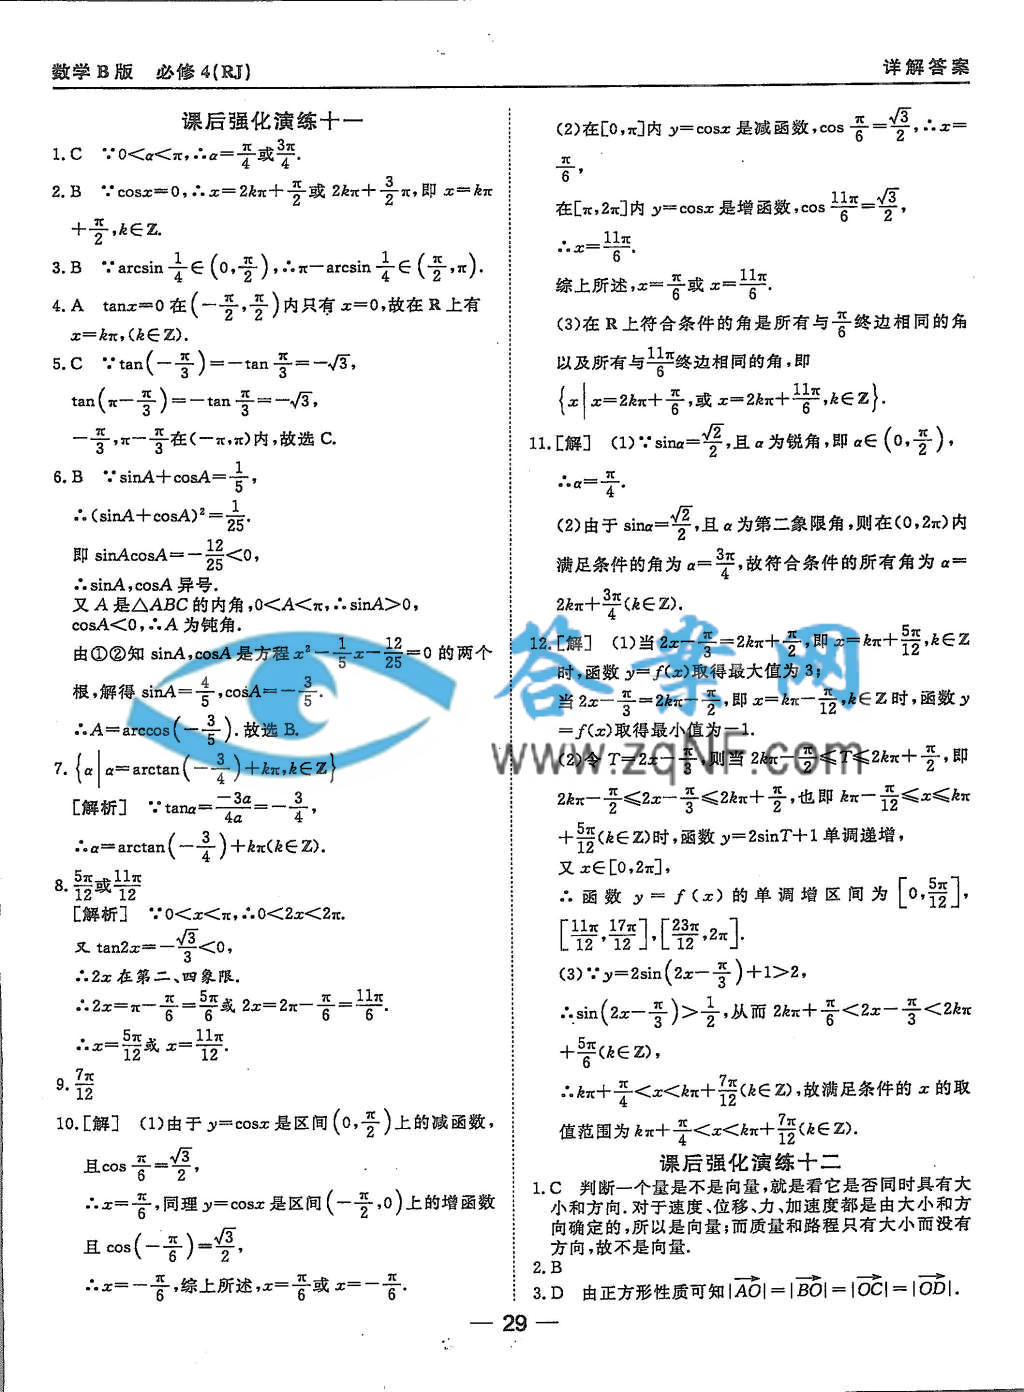 数学B版 必修4(RJ)
详解答案
课后强化演练十一
1.C ∵0<α<π,∴α=π/4或3π/4.
2.B ∵cosx=0,∴x=2kπ+π/2或2kπ+3/2π,即x=kπ
+π/2,k∈Z.
3.B ∵arcsin 1/4∈(0,π/2),∴π-arcsin 1/4∈(π/2,π).
4.A tanx=0在(-π/2,π/2)内只有x=0,故在R上有
x=kπ,(k∈Z).
5.C ∵tan(-π/3)=-tan π/3=-√3,
tan(π-π/3)=-tan π/3=-√3,
-π/3,π-π/3在(-π,π)内,故选C.
6.B ∵sinA+cosA=1/5,
∴(sinA+cosA)²=1/25.
即sinAcosA=-12/25<0,
∴sinA,cosA异号.
又A是△ABC的内角,0<A<π,∴sinA>0,
cosA<0,∴A为钝角.
由①②知sinA,cosA是方程x²-1/5x-12/25=0的两个
根,解得sinA=4/5,cosA=-3/5.
∴A=arccos(-3/5).故选B.
7.{α|α=arctan(-3/4)+kπ,k∈Z}
[解析] ∵tanα=-3a/4a=-3/4,
∴α=arctan(-3/4)+kπ(k∈Z).
8.5π/12或11π/12
[解析] ∵0<x<π,∴0<2x<2π.
又tan2x=-√3/3<0,
∴2x在第二、四象限.
∴2x=π-π/6=5π/6或2x=2π-π/6=11π/6.
∴x=5π/12或x=11π/12.
9.7π/12
10.[解] (1)由于y=cosx是区间(0,π/2)上的减函数,
且cos π/6=√3/2,
∴x=π/6,同理y=cosx是区间(-π/2,0)上的增函数
且cos(-π/6)=√3/2,
∴x=-π/6,综上所述,x=π/6或x=-π/6.
(2)在[0,π]内y=cosx是减函数,cos π/6=√3/2,∴x=
π/6,
在[π,2π]内y=cosx是增函数,cos 11π/6=√3/2,
∴x=11π/6.
综上所述,x=π/6或x=11π/6.
(3)在R上符合条件的角是所有与π/6终边相同的角
以及所有与11π/6终边相同的角,即
{x|x=2kπ+π/6,或x=2kπ+11π/6,k∈Z}.
11.[解] (1)∵sinα=√2/2,且α为锐角,即α∈(0,π/2),
∴α=π/4.
(2)由于sinα=√2/2,且α为第二象限角,则在(0,2π)内
满足条件的角为α=3π/4,故符合条件的所有角为α=
2kπ+3π/4(k∈Z).
12.[解] (1)当2x-π/3=2kπ+π/2,即x=kπ+5π/12,k∈Z
时,函数y=f(x)取得最大值为3;
当2x-π/3=2kπ-π/2,即x=kπ-π/12,k∈Z时,函数y
=f(x)取得最小值为-1.
(2)令T=2x-π/3,则当2kπ-π/2≤T≤2kπ+π/2,即
2kπ-π/2≤2x-π/3≤2kπ+π/2,也即kπ-π/12≤x≤kπ
+5π/12(k∈Z)时,函数y=2sinT+1单调递增,
又x∈[0,2π],
∴函数y=f(x)的单调增区间为[0,5π/12],
[11π/12,17π/12],[23π/12,2π].
(3)∵y=2sin(2x-π/3)+1>2,
∴sin(2x-π/3)>1/2,从而2kπ+π/6<2x-π/3<2kπ
+5π/6(k∈Z),
∴kπ+π/4<x<kπ+7π/12(k∈Z),故满足条件的x的取
值范围为kπ+π/4<x<kπ+7π/12(k∈Z).
课后强化演练十二
1.C 判断一个量是不是向量,就是看它是否同时具有大
小和方向.对于速度、位移、力、加速度都是由大小和方
向确定的,所以是向量;而质量和路程只有大小而没有
方向,故不是向量.
2.B
3.D 由正方形性质可知|AO→|=|BO→|=|OC→|=|OD→|.
— 29 —
答案网
www.zqnf.com